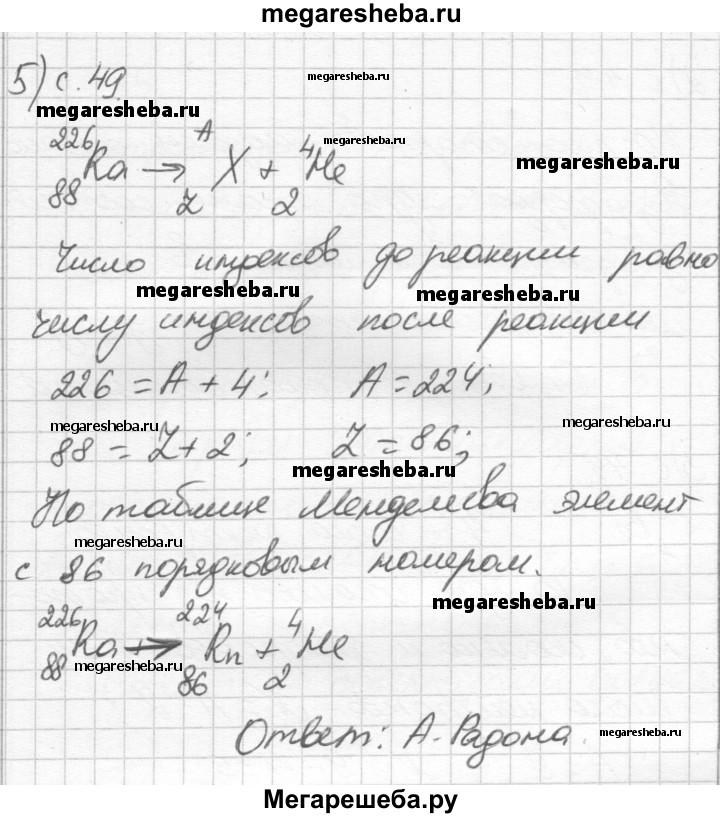 megaresheba.ru
5) с. 49
megaresheba.ru
megaresheba.ru
226 88 Ra → A Z X + 4 2 He
megaresheba.ru
megaresheba.ru
Число индексов до реакции равно
megaresheba.ru
megaresheba.ru
числу индексов после реакции
226 = A + 4; A = 224;
megaresheba.ru
megaresheba.ru
88 = Z + 2; Z = 86;
megaresheba.ru
По таблице Менделеева элемент
megaresheba.ru
с 86 порядковым номером.
megaresheba.ru
226 88 Ra → 224 86 Rn + 4 2 He
megaresheba.ru
Ответ: А. Радона
megaresheba.ru
Мегарешеба.ру